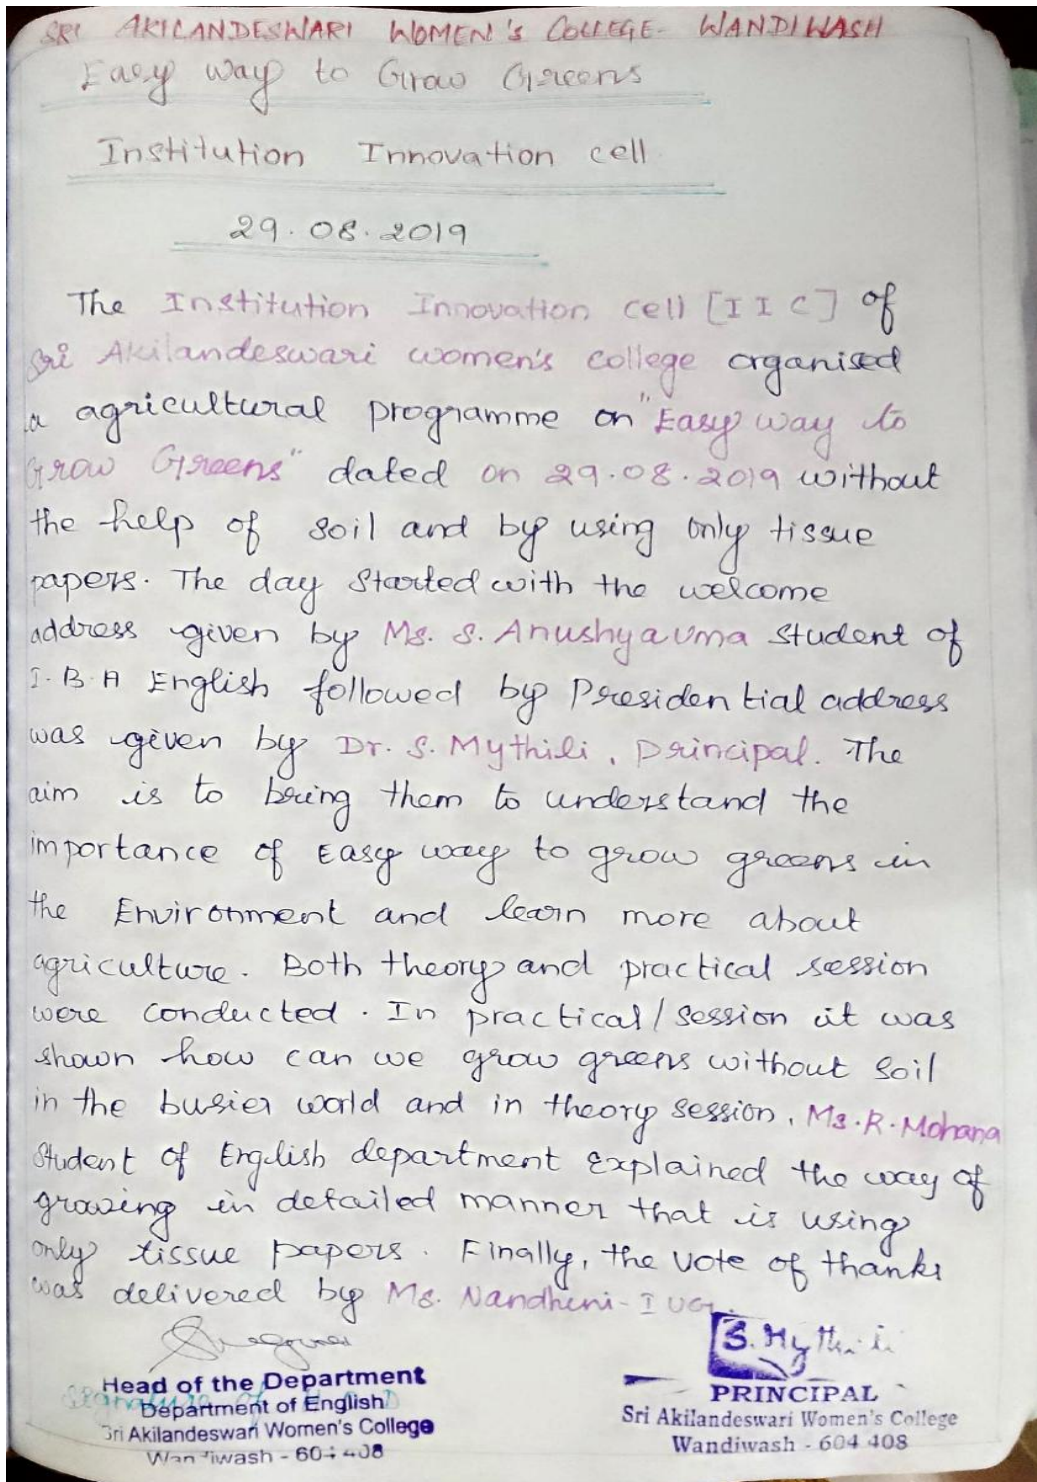 SRI AKILANDESWARI WOMEN'S COLLEGE- WANDIWASH
Easy way to Grow Greens
Institution Innovation cell
29.08.2019
The Institution Innovation cell [I I C] of
Sri Akilandeswari women's college organised
a agricultural programme on "Easy way to
Grow Greens" dated on 29.08.2019 without
the help of soil and by using only tissue
papers. The day started with the welcome
address given by Ms. S. Anushyauma student of
I. B.A English followed by Presidential address
was given by Dr. S. Mythili, principal. The
aim is to bring them to understand the
importance of Easy way to grow greens in
the Environment and learn more about
agriculture. Both theory and practical session
were conducted. In practical/session it was
shown how can we grow greens without soil
in the busier world and in theory session, Ms.R.Mohana
Student of English department explained the way of
growing in detailed manner that is using
only tissue papers. Finally, the vote of thanks
was delivered by Ms. Nandhini-I UG.
S. Mythili
Head of the Department
PRINCIPAL
Signature of
Department of English
Sri Akilandeswari Women's College
Sri Akilandeswari Women's College
Wandiwash - 604 408
Wandiwash - 604 408